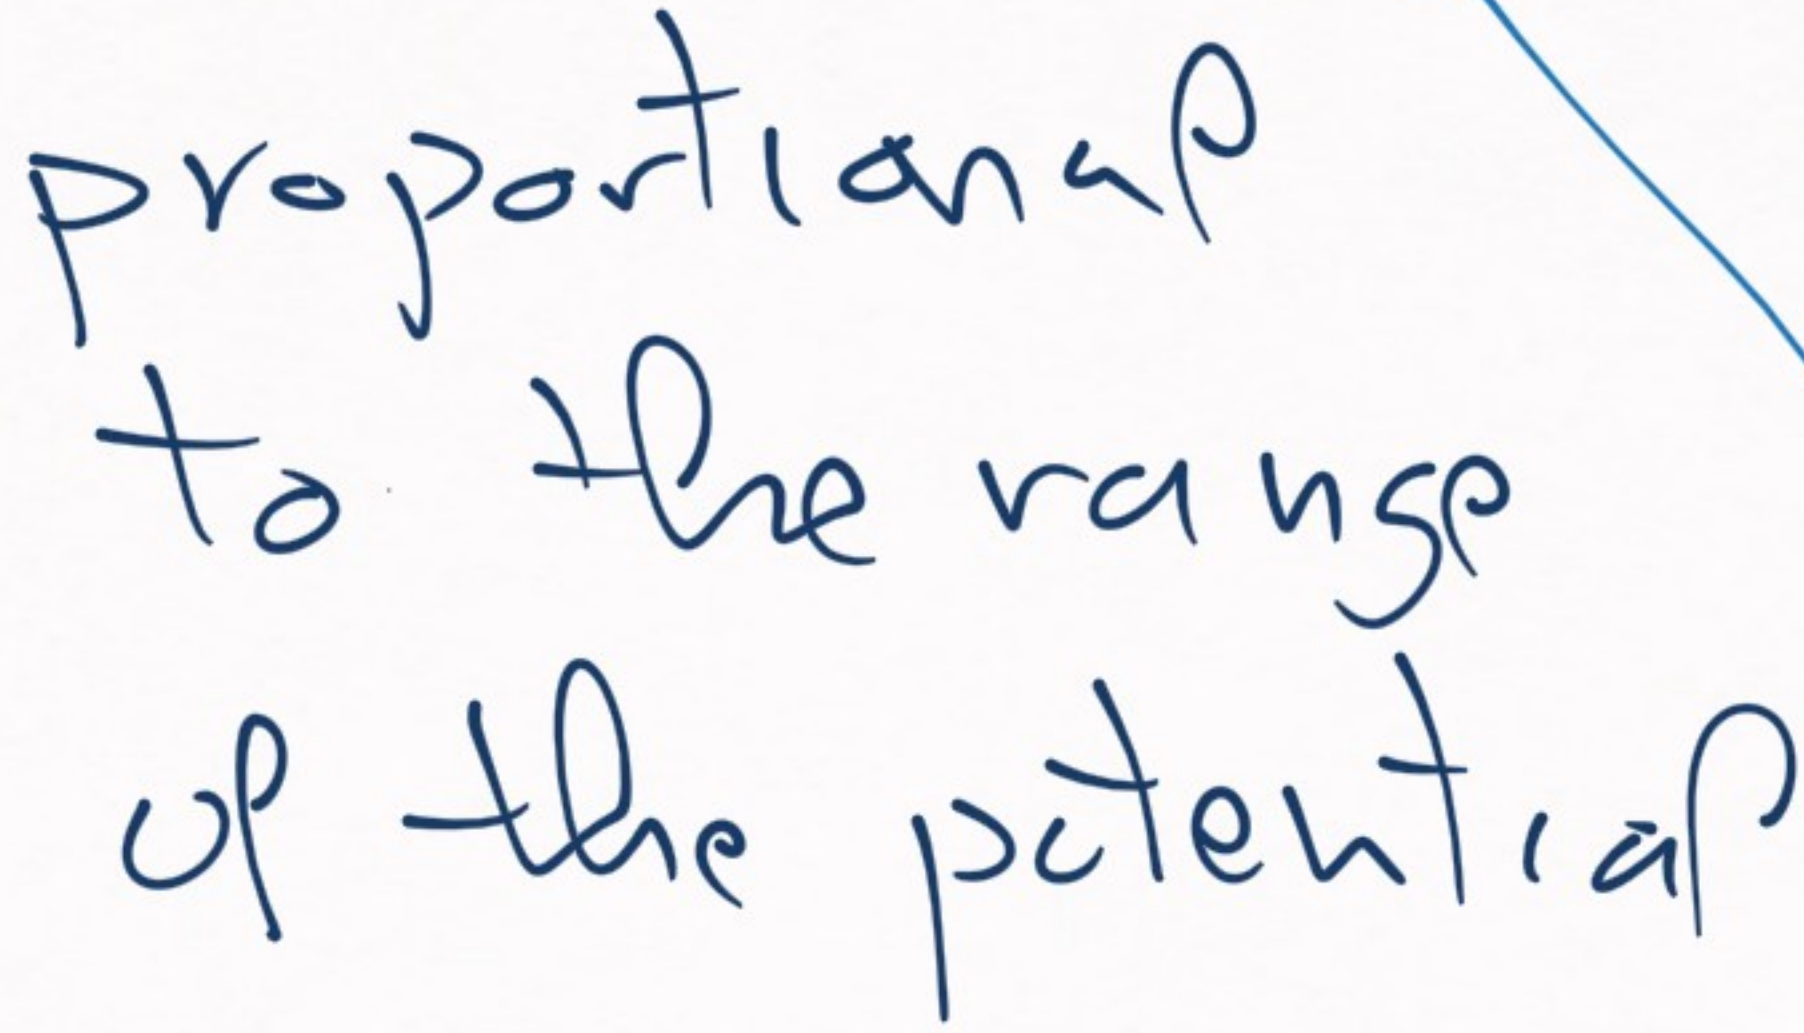 proportional
to the range
of the potential